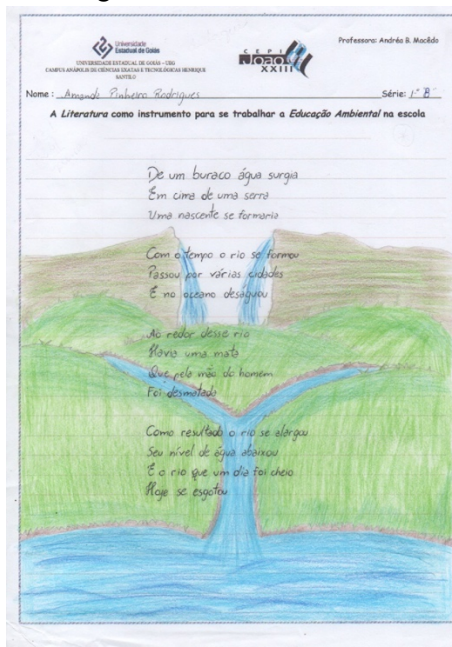 Universidade
Estadual de Goiás
UNIVERSIDADE ESTADUAL DE GOIÁS – UEG
CAMPUS ANÁPOLIS DE CIÊNCIAS EXATAS E TECNOLÓGICAS HENRIQUE
SANTILO
CEPI
João
XXIII
Professora: Andréa B. Macêdo
Nome: Amanda Pinheiro Rodrigues Série: 1º B
A Literatura como instrumento para se trabalhar a Educação Ambiental na escola
De um buraco água surgia
Em cima de uma serra
Uma nascente se formaria
Com o tempo o rio se formou
Passou por várias cidades
E no oceano desaguou
Ao redor desse rio
Havia uma mata
Que pela mão do homem
Foi desmatada
Como resultado o rio se alargou
Seu nível de água abaixou
E o rio que um dia foi cheio
Hoje se esgotou